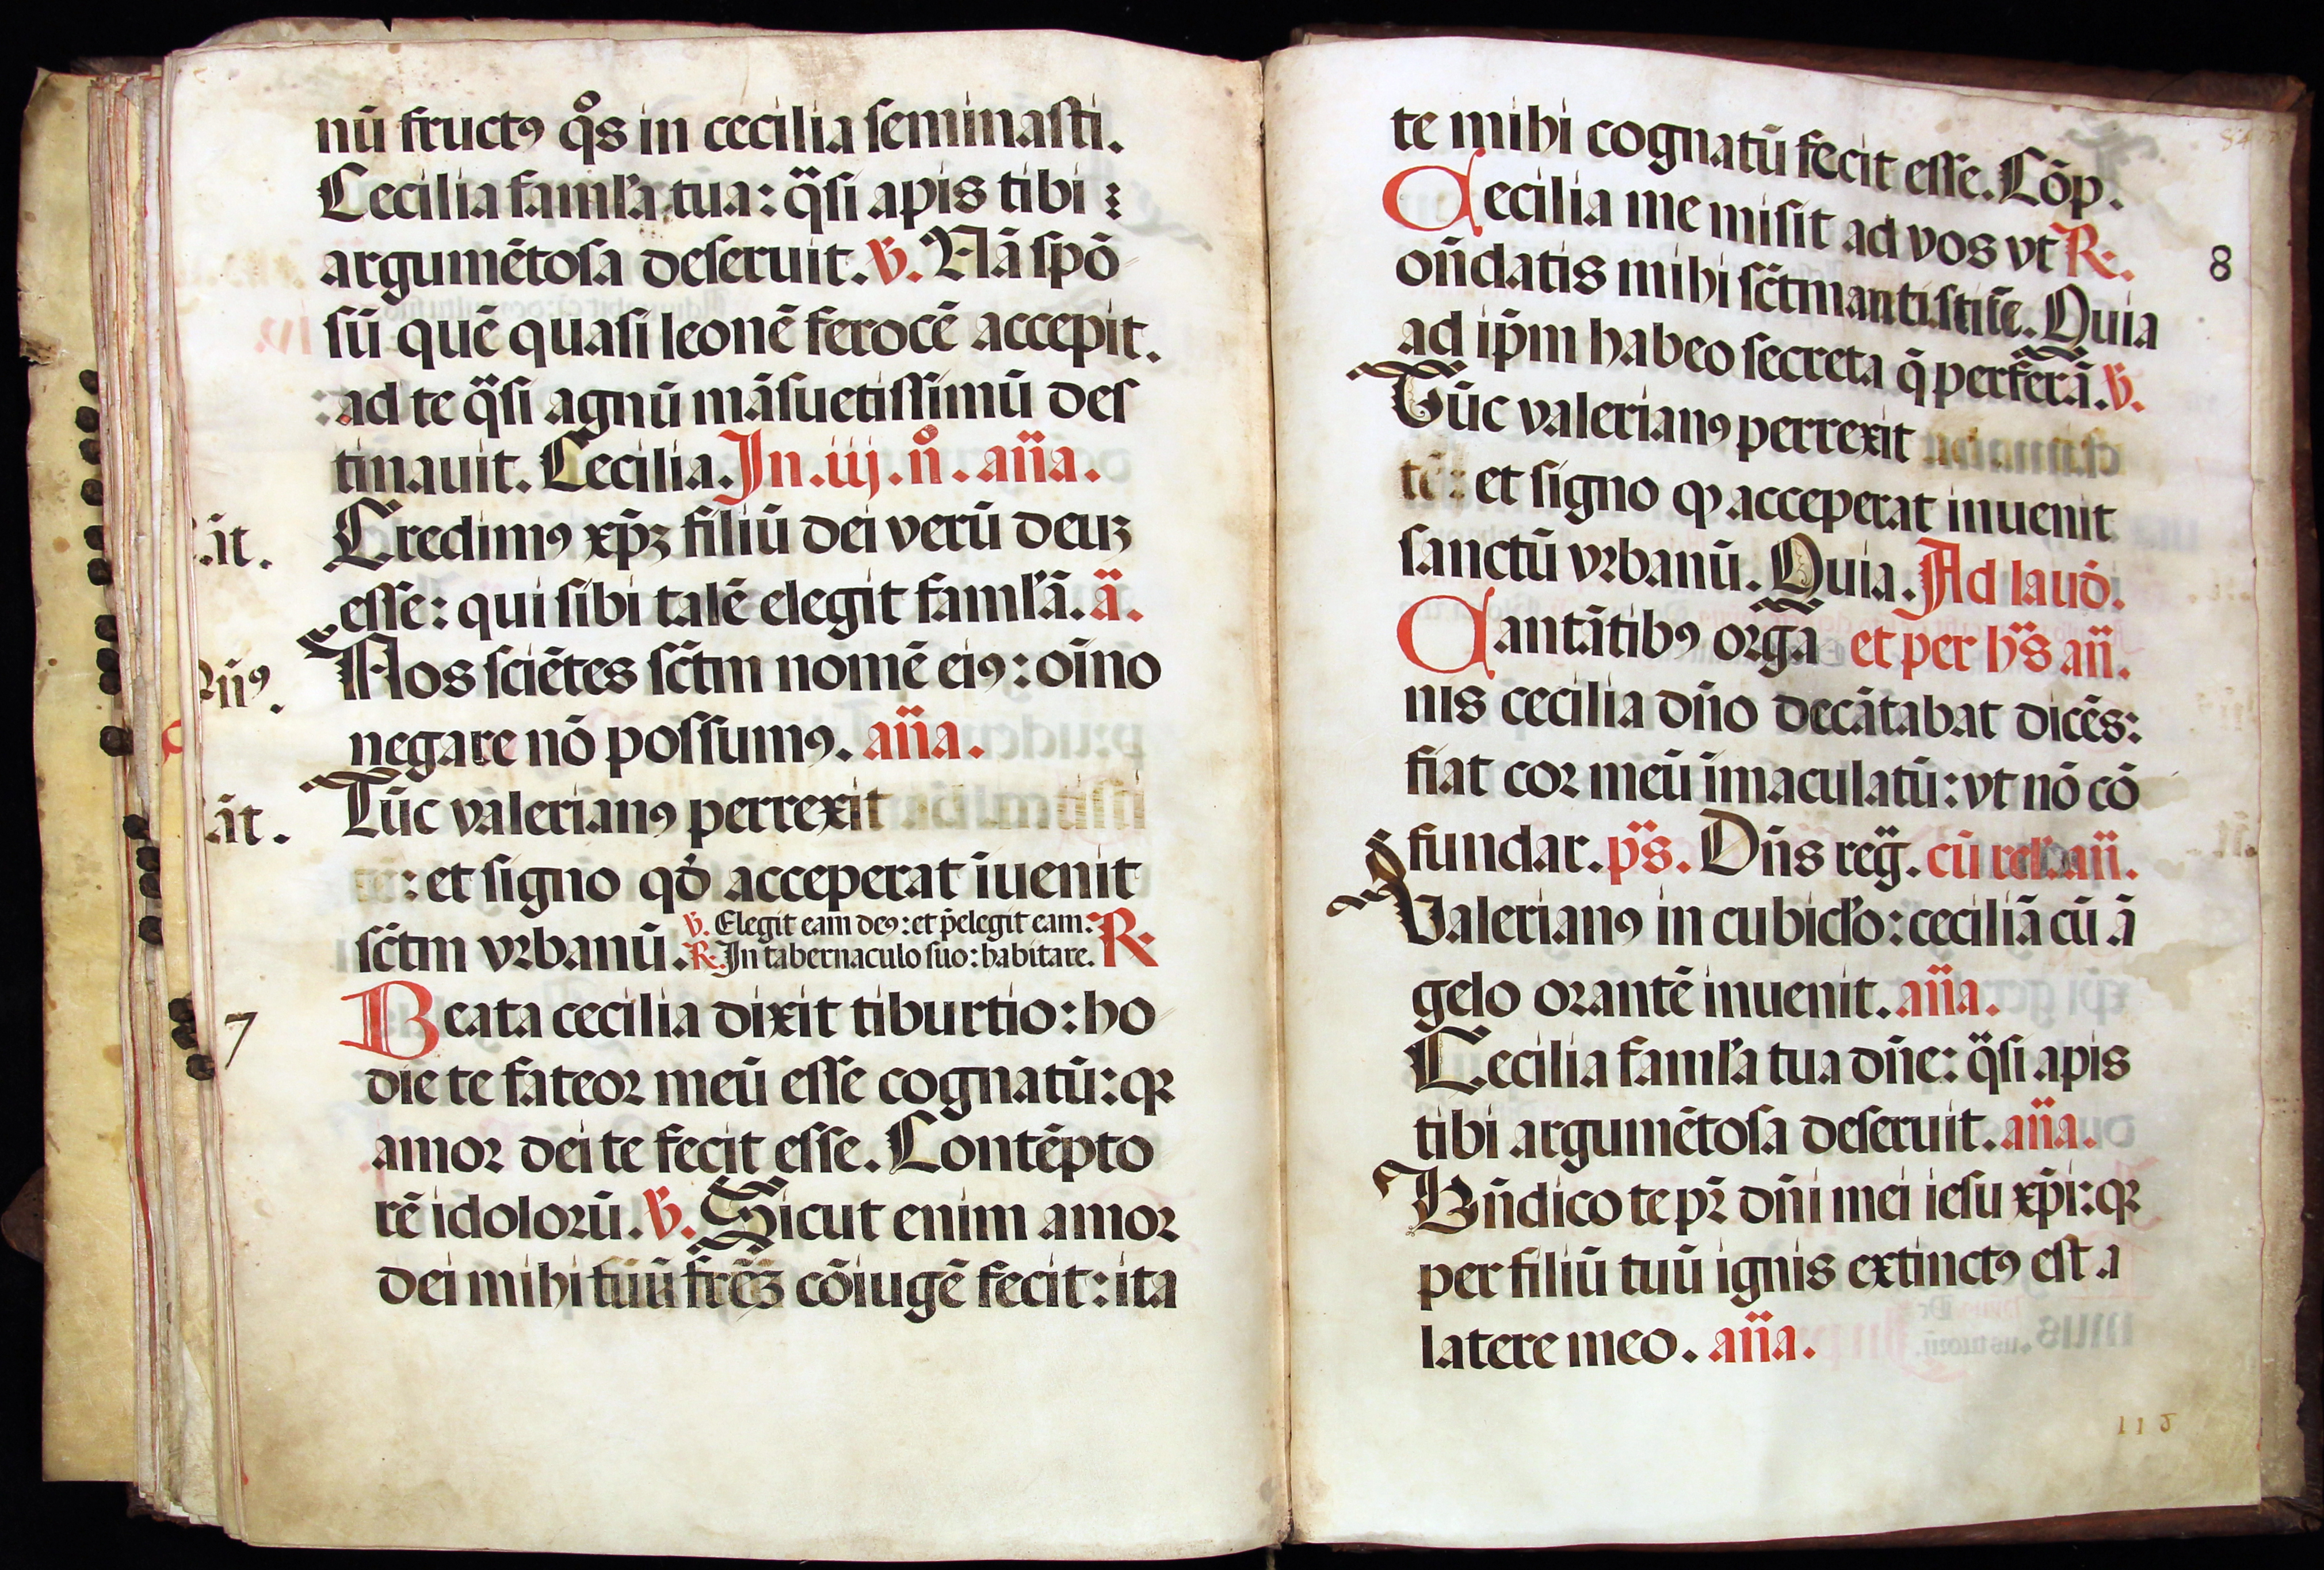 nū fructꝯ q̊s in cecilia seminasti.
Cecilia famľa tua: q̈si apis tibi
argumētosa deseruit. ℣. Nā spō
sū quē quasi leonē ferocē accepit.
: ad te q̈si agnū māsuetissimū des
tinauit. Cecilia. In .iij. n̊. an̄a.
Credimꝯ xp̄ꝫ filiū dei verū deuꝫ
.āt.
esse: qui sibi talē elegit famľā. ā.
Nos sciētes sc̄tm nomē eiꝯ: oīno
negare nō possumꝯ. an̄a.
Tūc valerianꝯ perrexit
āt.
: et signo qđ acceperat īuenit
sc̄tm vꝛbanū.
℣. Elegit eam deꝯ: et p̄elegit eam:
℟. In tabernaculo suo: habitare. ℟.
7
Beata cecilia dixit tiburtio: ho
die te fateoꝛ meū esse cognatū: qꝛ
amoꝛ dei te fecit esse. Contēpto
rē idoloꝛū. ℣. Sicut enim amoꝛ
dei mihi tuū fr̄eꝫ cōiugē fecit: ita
te mihi cognatū fecit esse. Cōp.
Cecilia me misit ad vos vt ℟.
8
on̄datis mihi sc̄tm antistitē. Quia
ad ip̄m habeo secreta q̄ perferā. ℣.
Tūc valerianꝯ perrexit
tē: et signo qꝫ acceperat inuenit
sanctū vꝛbanū. Quia. Ad lauđ.
Cantātibꝯ oꝛga et per h̄s an̄.
nis cecilia dn̄o decātabat dicēs:
fiat coꝛ meū īmaculatū: vt nō cō
fundar. p̄s. Dn̄s reg̈. cū rel. an̄.
Valerianꝯ in cubicľo: ceciliā cū ā
gelo oꝛantē inuenit. an̄a.
Cecilia famľa tua dn̄e: q̈si apis
tibi argumētosa deseruit. an̄a.
Bn̄dico te pꝛ̄ dn̄i mei iesu xp̄i: qꝛ
per filiū tuū ignis extinctꝯ est a
latere meo. an̄a.
115